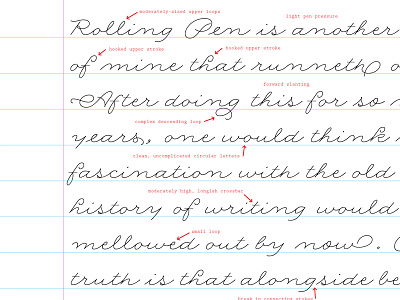 moderately-sized upper loops
light pen pressure
Rolling Pen is another
hooked upper stroke
hooked upper stroke
of mine that runneth o
forward slanting
After doing this for so
complex descending loop
years, one would think
clean, uncomplicated circular letters
fascination with the old
moderately high, longish crossbar
history of writing would
small loop
mellowed out by now.
truth is that alongside be
break in connecting stroke